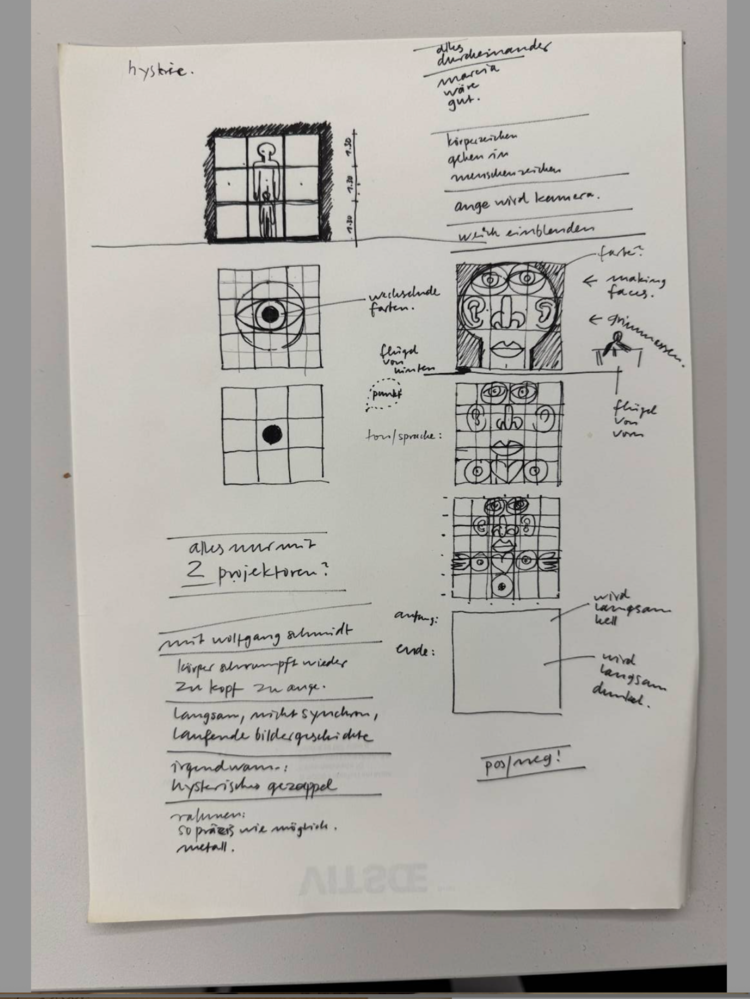 hysterie.
alles
durcheinander
marcia
wäre
gut.
1.30
1.30
1.30
körperzeichen
gehen in
menschenzeichen
auge wird kamera.
weich einblenden
farbe?
← making
faces.
← grimmassen.
wechselnde
farben.
flügel
von
hinten
punkt
ton/sprache:
flügel
von
vorn
alles nur mit
2 projektoren?
anfang:
wird
langsam
hell
ende:
wird
langsam
dunkel.
mit wolfgang schmidt
körper schrumpft wieder
zu kopf zu auge.
langsam, nicht synchron,
laufende bildergeschichte
irgendwann:
hysterisches gezappel
rahmen:
so präzis wie möglich.
metall.
pos/neg!
VITSOE